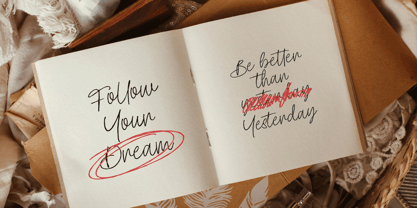 Follow
Your
Dream
Be better
than
yesterday
Yesterday